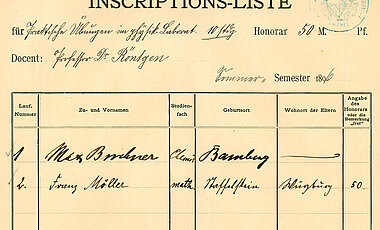 INSCRIPTIONS-LISTE
für Praktische Übungen im physik. Laborat. 10 stdg Honorar 50 M. Pf.
Docent: Professor Dr Röntgen
Sommer- Semester 1896
Lauf. Nummer Zu- und Vornamen Studien- fach Geburtsort Wohnort der Eltern Angabe des Honorars oder die Bemerkung „frei"
1 Max Chem. Bamberg
2. Franz Möller math. Staffelstein Würzburg 50.